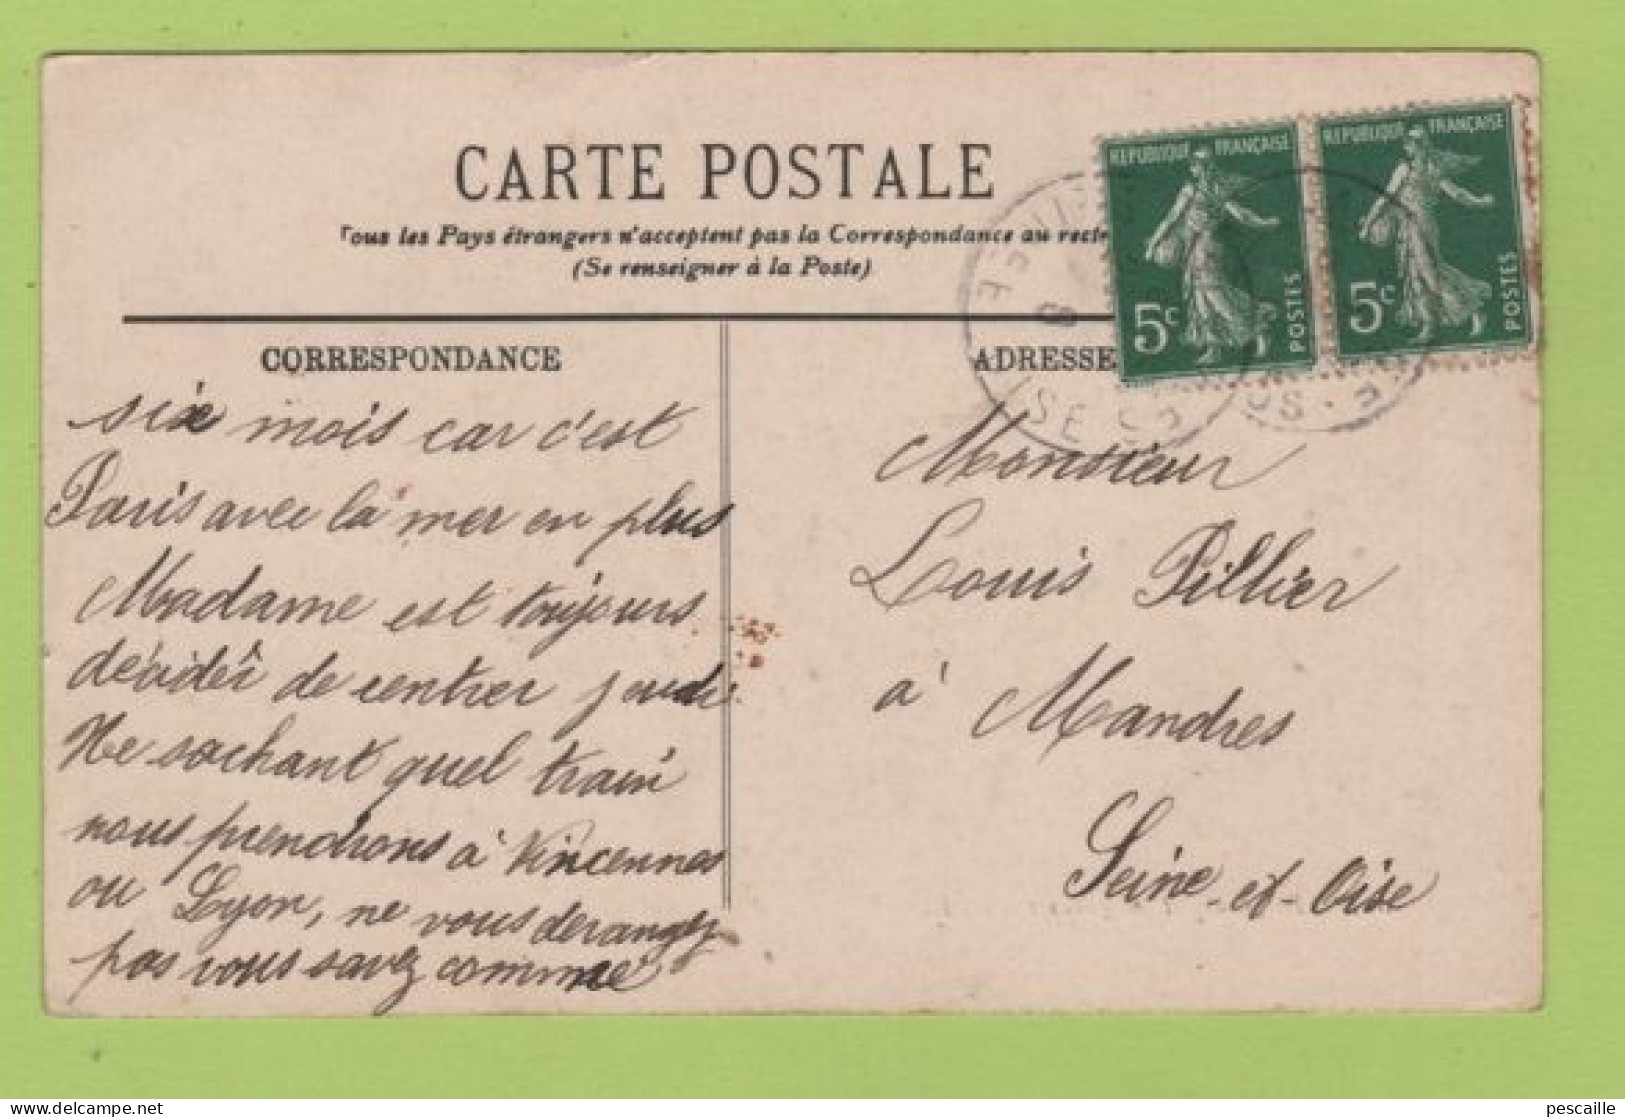 CARTE POSTALE
Tous les Pays étrangers n'acceptent pas la Correspondance au recto
(Se renseigner à la Poste)
CORRESPONDANCE
ADRESSE
REPUBLIQUE FRANÇAISE
5c
POSTES
REPUBLIQUE FRANÇAISE
5c
POSTES
six mois car c'est
Paris avec la mer en plus
Madame est toujours
décidér de rentrer jeudi
Ne sachant quel train
nous prendrons à Vincennes
ou Lyon, ne vous derangez
pas vous savez comme
Monsieur
Louis Pillier
à Mandres
Seine-et-Oise
pescaille